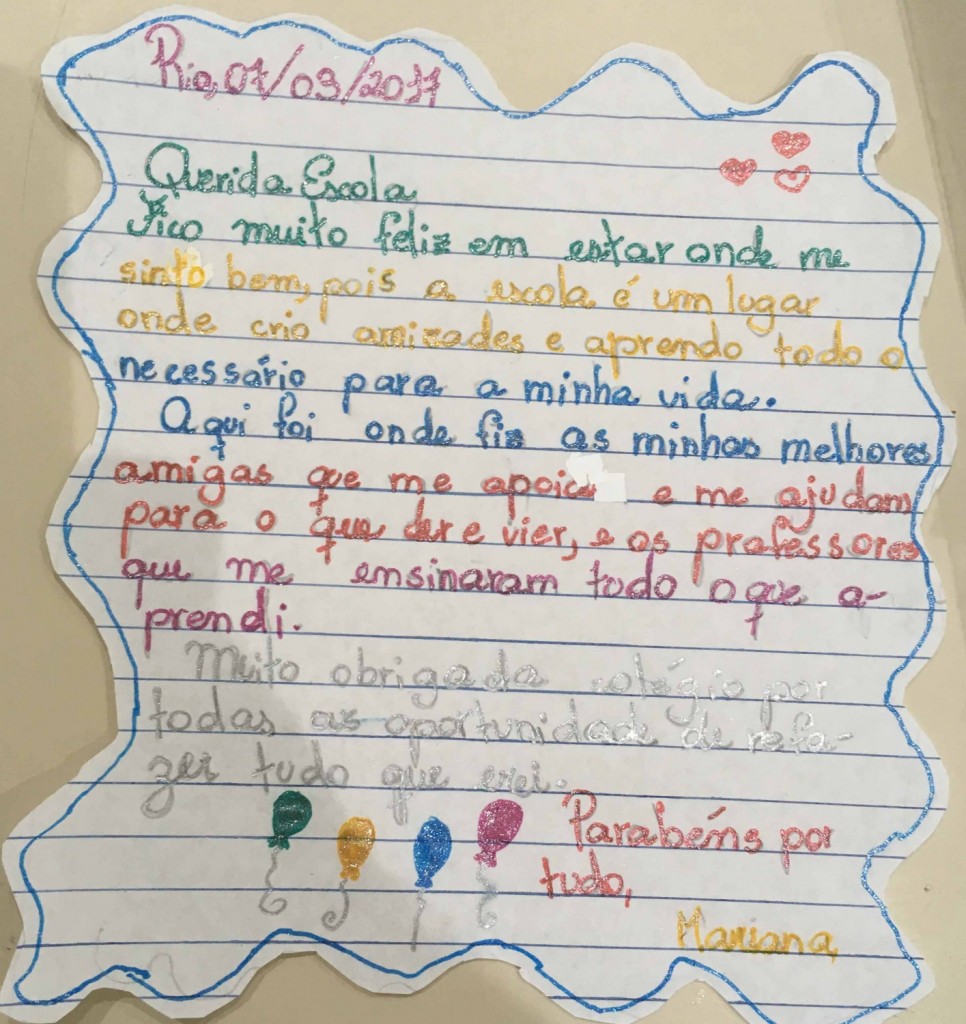 Rio, 07/03/2017
Querida Escola
Fico muito feliz em estar onde me
sinto bem, pois a escola é um lugar
onde crio amizades e aprendo todo o
necessário para a minha vida.
Aqui foi onde fiz as minhas melhores
amigas que me e me ajudam
para o que der e vier, e os professores
que me ensinaram todo o que a-
prendi.
Muito obrigada colégio por
todas as oportunidade de refa-
zer tudo que errei.
Parabéns por
tudo,
Mariana